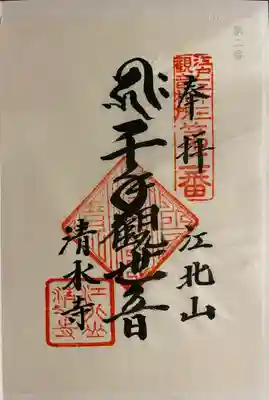 第二番
奉拝
江戸三十三
観音札所第二番
千手観世音
江北山
清水寺